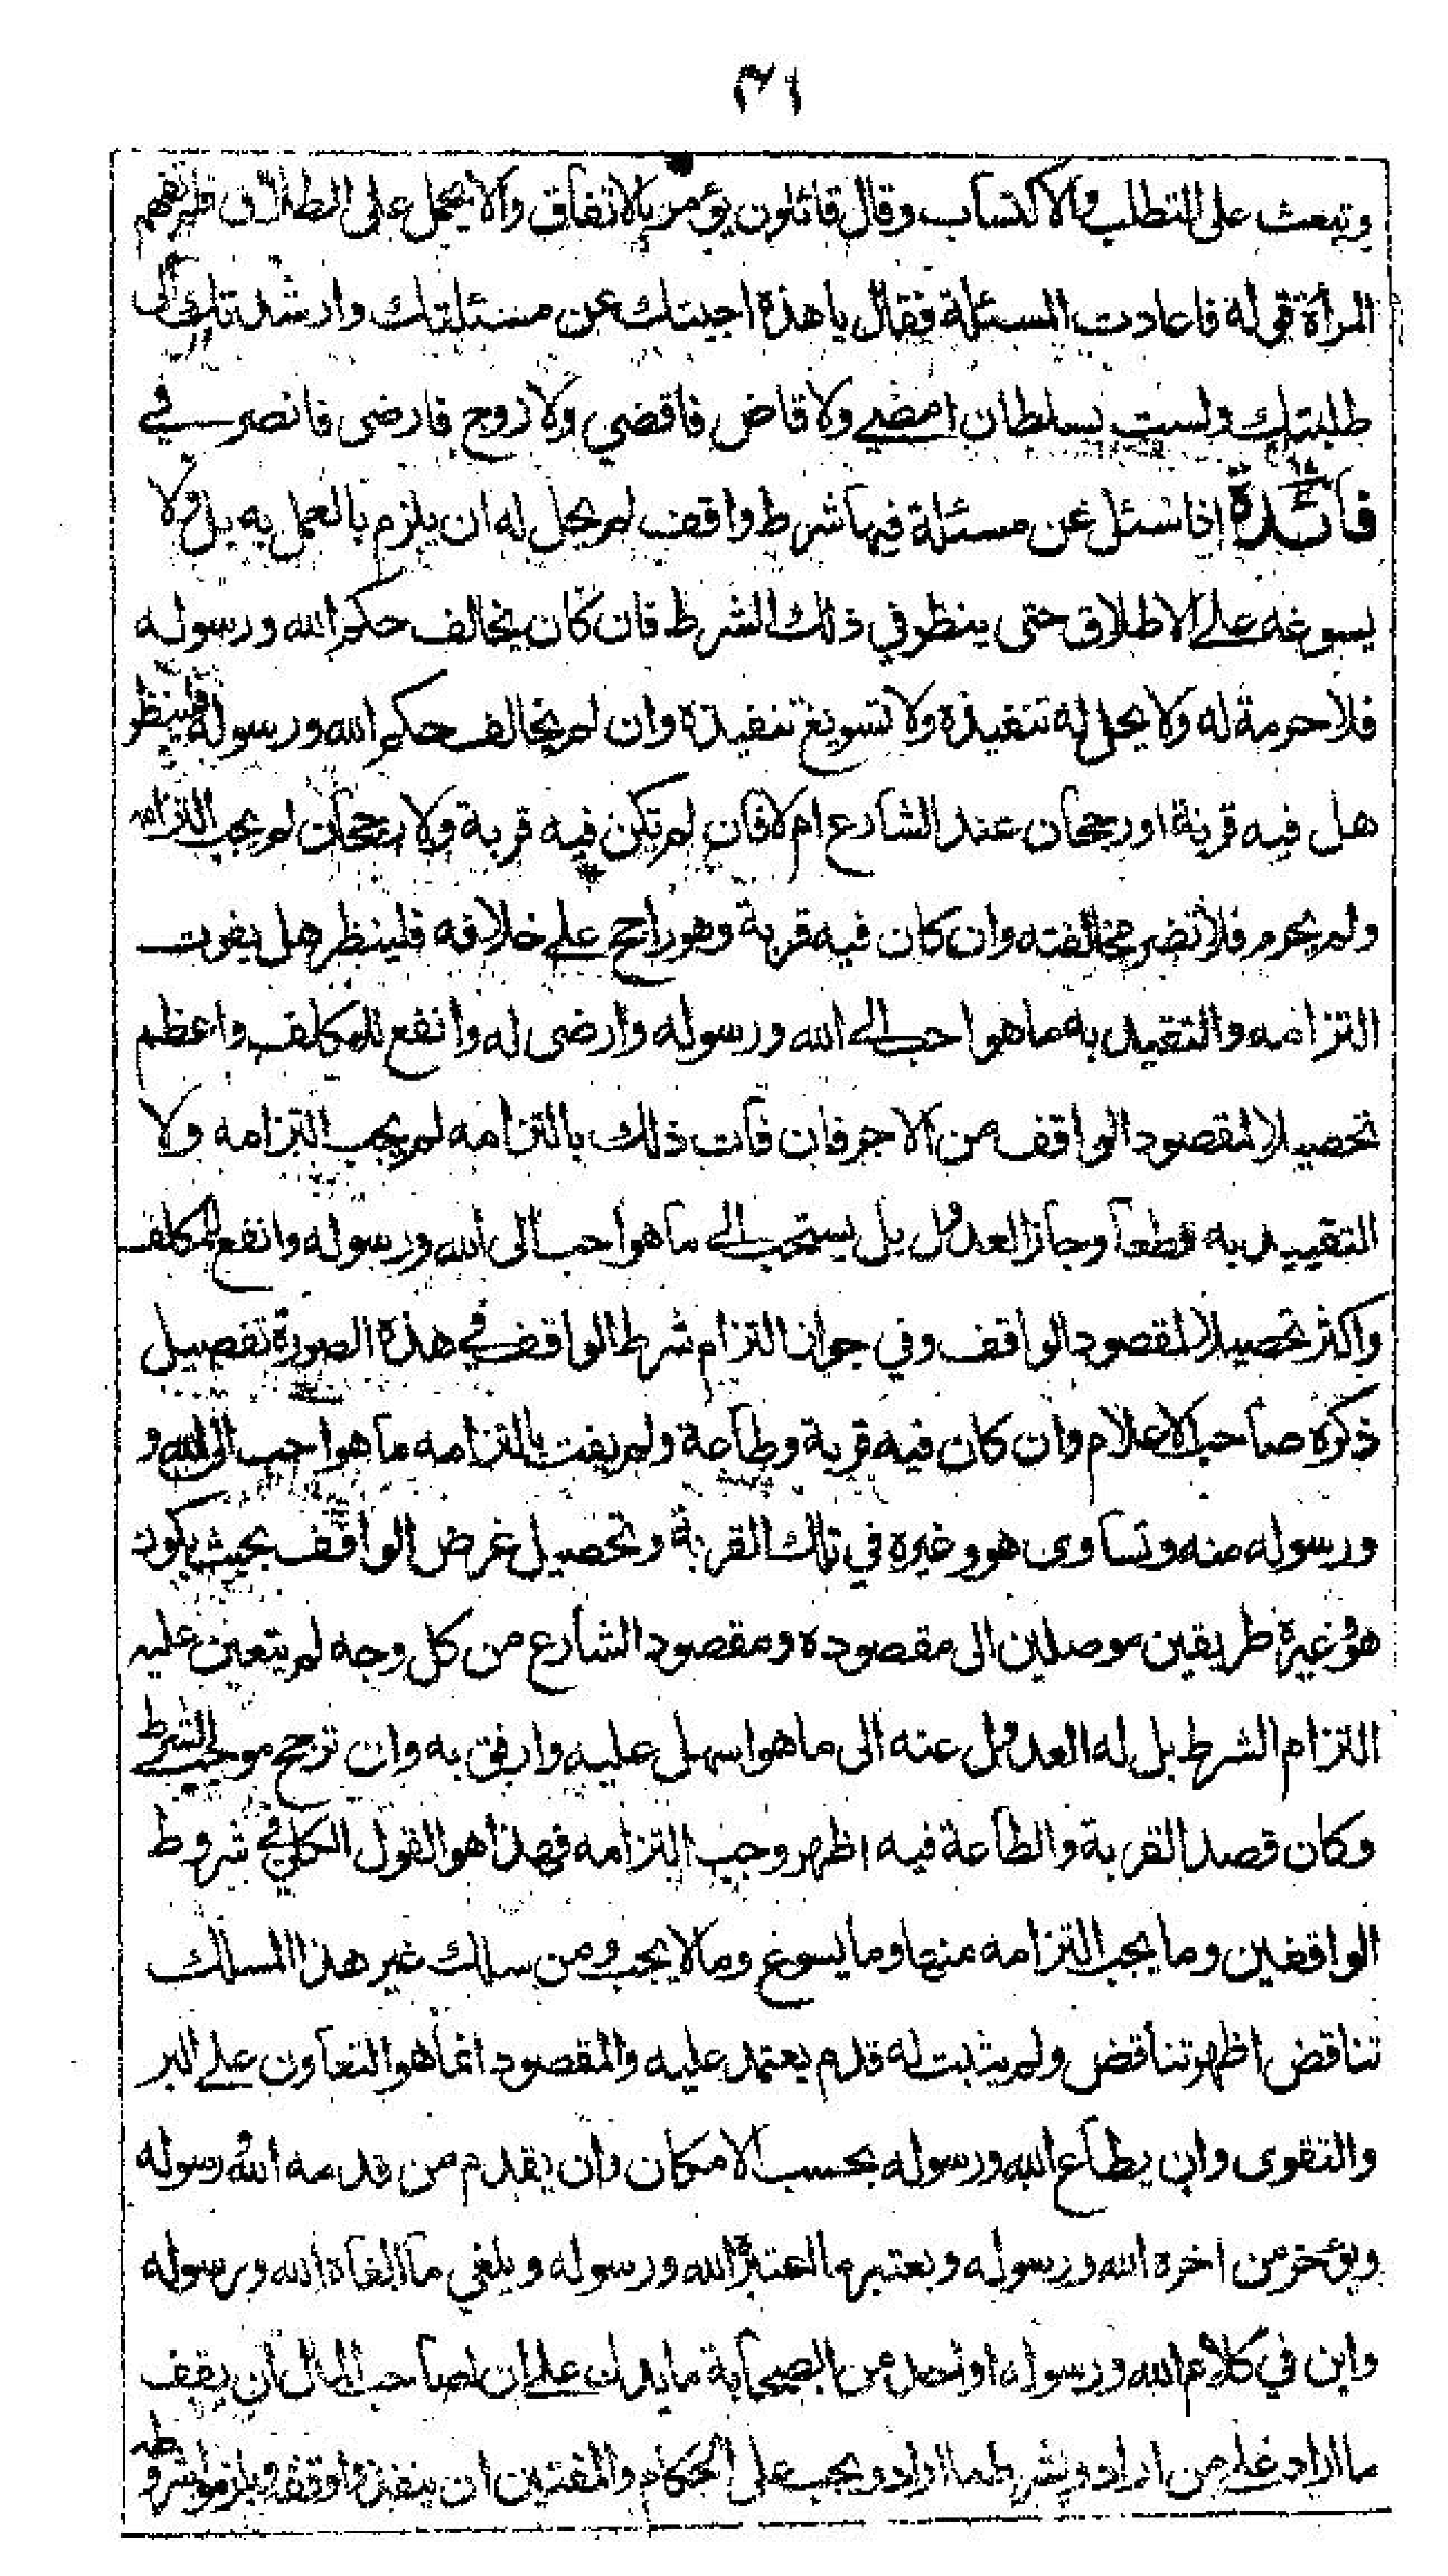 ٣١
وتبعث على التطلب والاكتساب وقال قائلون يؤمر بالانفاق والا يحمل على الطلاق فلم تفهم
المرأة قوله فاعادت المسئلة فقال يا هذه اجبتك عن مسئلتك وارشدتك الى
طلبتك ولست بسلطان امضي ولا قاض فاقضي ولا زوج فارضى فانصرفي
فائدة اذا سئل عن مسئلة فيها شرط واقف لم يحل له ان يلزم بالعمل به بل ولا
يسوغه على الاطلاق حتى ينظر في ذلك الشرط فان كان يخالف حكم الله ورسوله
فلا حرمة له ولا يحل له تنفيذه ولا تسويغ تنفيذه وان لم يخالف حكم الله ورسوله فلينظر
هل فيه قربة او رجحان عند الشارع ام لا فان لم تكن فيه قربة ولا رجحان لم يجب التزامه
ولم يحرم فلا تضر مخالفته وان كان فيه قربة وهو راجح على خلافه فلينظر هل يفوت
التزامه والتقيد به ما هو احب الى الله ورسوله وارضى له وانفع للمكلف واعظم
تحصيلا لمقصود الواقف من الاجر فان فات ذلك بالتزامه لم يجب التزامه ولا
التقييد به قطعا وجاز العدول بل يستحب الى ما هو احب الى الله ورسوله وانفع للمكلف
واكثر تحصيلا لمقصود الواقف وفي جواز التزام شرط الواقف في هذه الصورة تفصيل
ذكره صاحب الاعلام وان كان فيه قربة وطاعة ولم يفت بالتزامه ما هو احب الى الله و
ورسوله منه وتساوى هو وغيره في تلك القربة وتحصيل غرض الواقف بحيث يكون
هو وغيره طريقين موصلين الى مقصوده ومقصود الشارع من كل وجه لم يتعين عليه
التزام الشرط بل له العدول عنه الى ما هو اسهل عليه وارفق به وان ترجح موجب الشرط
وكان قصد القربة والطاعة فيه اظهر وجب التزامه فهذا هو القول الكلي في شروط
الواقفين وما يجب التزامه منها وما يسوغ وما لا يجب ومن سلك غير هذا المسلك
تناقض اظهر تناقض ولم يثبت له قدم يعتمد عليه والمقصود انما هو التعاون على البر
والتقوى وان يطاع الله ورسوله بحسب الامكان وان يقدم من قدمه الله ورسوله
ويؤخر من اخره الله ورسوله ويعتبر ما اعتبره الله ورسوله ويلغي ما الغاه الله ورسوله
واين في كلام الله ورسوله او احد من الصحابة ما يدل على ان لصاحب المال ان يقف
ما اراد على من اراد ويشرط ما اراد ويجب على الحكام والمفتين ان ينفذوا وقفه ويلزموا شروطه